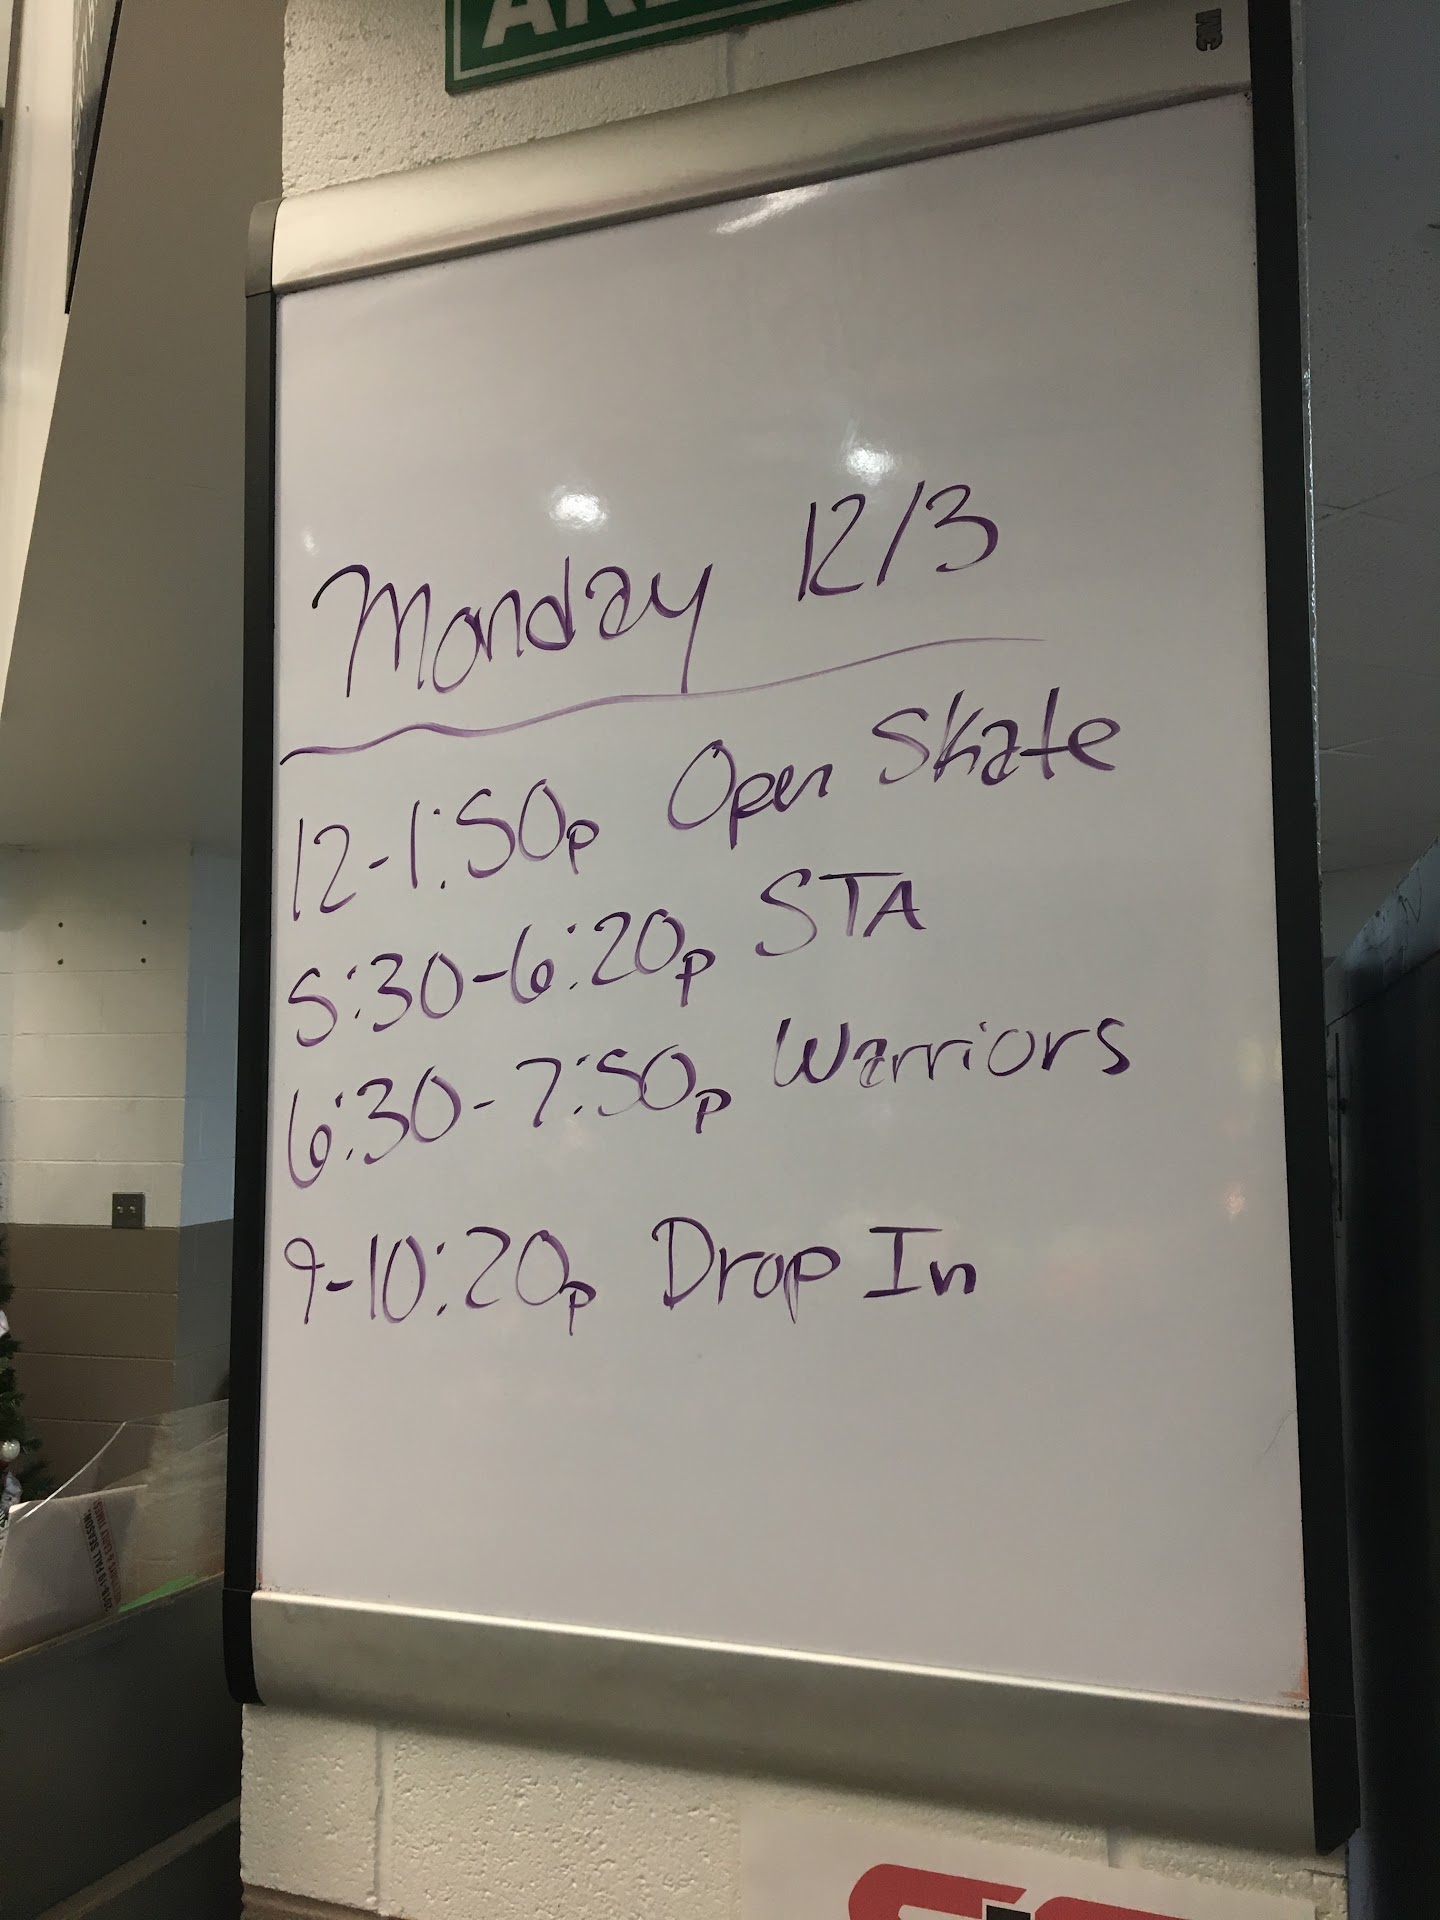 Monday 12/3
12-1:50p Open Skate
5:30-6:20p STA
6:30-7:50p Warriors
9-10:20p Drop In
2018-19 FALL SEASON: